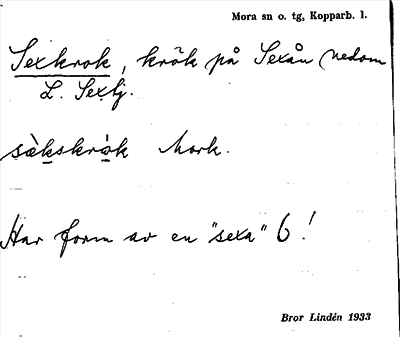 Mora sn o. tg, Kopparb. l.
Sexkrok, krök på Sexån nedom
L. Sextj.
sàkskròk Mork.
Har form av en "sexa" 6!
Bror Lindén 1933